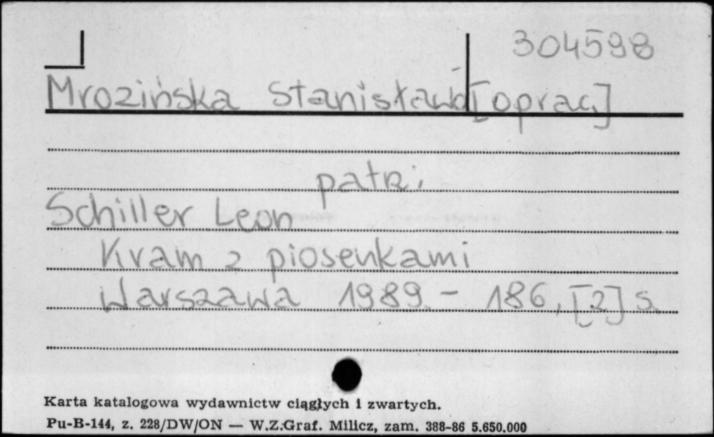 304598
Mrozińska Stanisława [oprac.]
patrz:
Schiller Leon
Kram z piosenkami
Warszawa 1989. - 186, [2] s.
Karta katalogowa wydawnictw ciągłych i zwartych.
Pu-B-144, z. 228/DW/ON — W.Z.Graf. Milicz, zam. 388-86 5.650.000